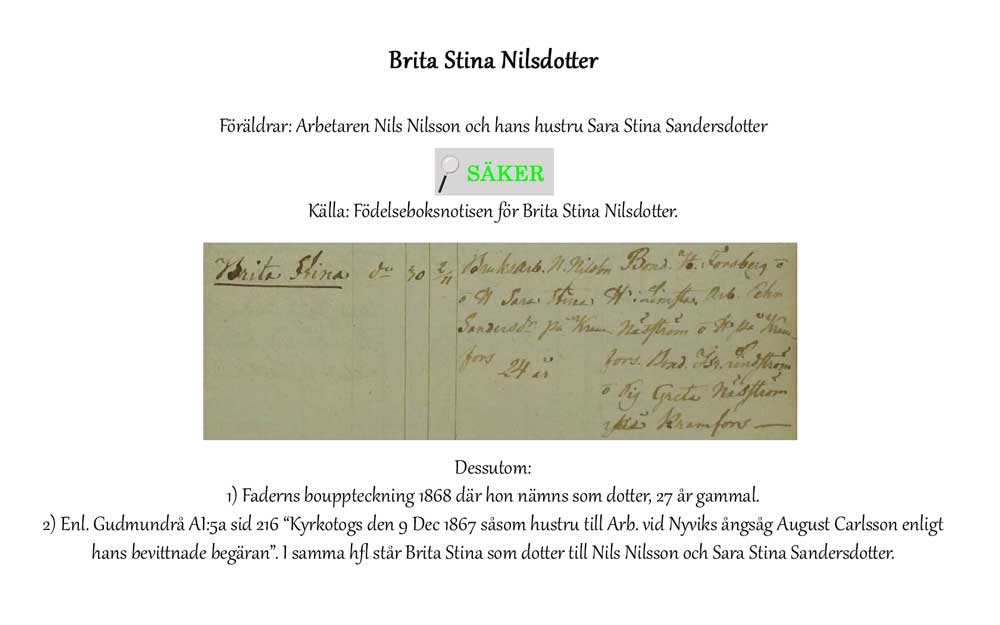 Brita Stina Nilsdotter
Föräldrar: Arbetaren Nils Nilsson och hans hustru Sara Stina Sandersdotter
SÄKER
Källa: Födelseboksnotisen för Brita Stina Nilsdotter.
Brita Stina 30 2/11 Bruksarb. N. Nilsson Bond. H. Forsberg o
o H Sara Stina Arb.
Sandersdr på Kram Näsström o H på Kram
fors 24 år fors. Bond.
o Pig Greta Näsström
på Kramfors —
Dessutom:
1) Faderns bouppteckning 1868 där hon nämns som dotter, 27 år gammal.
2) Enl. Gudmundrå AI:5a sid 216 “Kyrkotogs den 9 Dec 1867 såsom hustru till Arb. vid Nyviks ångsåg August Carlsson enligt
hans bevittnade begäran”. I samma hfl står Brita Stina som dotter till Nils Nilsson och Sara Stina Sandersdotter.